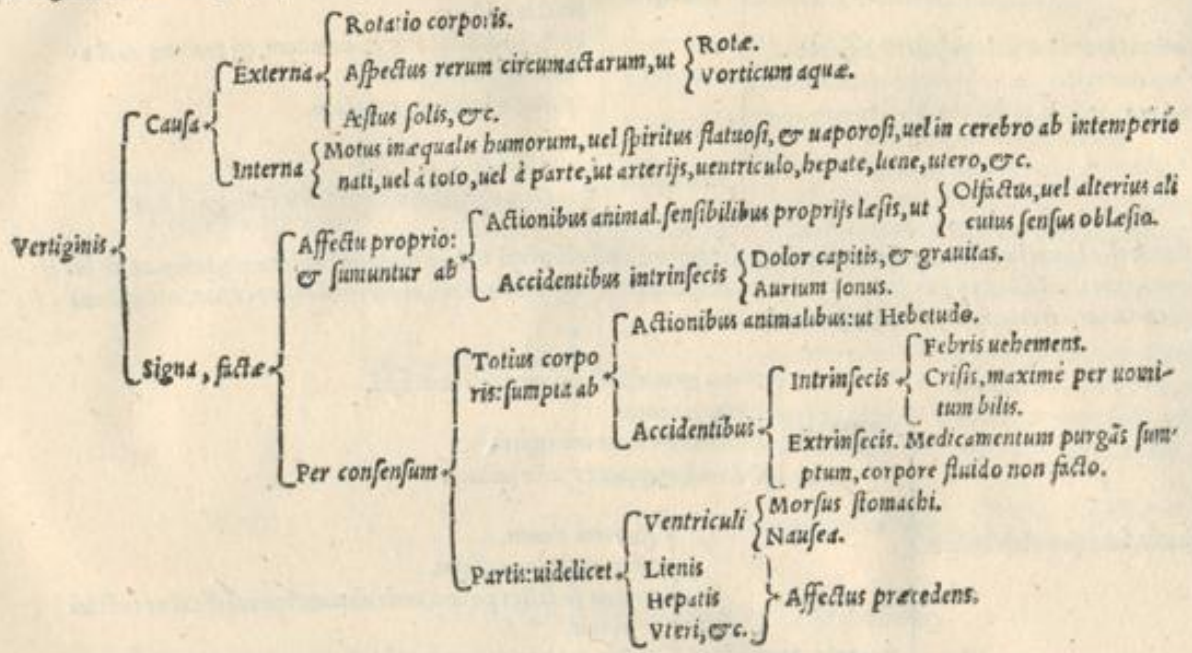 Rotatio corporis.
Externa
Aſpectus rerum circumactarum, ut
Rotæ.
Vorticum aquæ.
Æſtus ſolis, &c.
Cauſa
Interna
Motus inæqualis humorum, uel ſpiritus flatuoſi, & uaporoſi, uel in cerebro ab intemperie
nati, uel à toto, uel à parte, ut arterijs, uentriculo, hepate, liene, utero, &c.
Vertiginis
Signa, factæ
Affectu proprio:
& ſumuntur ab
Actionibus animal. ſenſibilibus proprijs læſis, ut
Olfactus, uel alterius ali
cuius ſenſus oblæſio.
Accidentibus intrinſecis
Dolor capitis, & grauitas.
Aurium ſonus.
Per conſenſum
Totius corpo
ris: ſumpta ab
Actionibus animalibus: ut Hebetudo.
Accidentibus
Intrinſecis
Febris uehemens.
Criſis, maximè per uomi-
tum bilis.
Extrinſecis. Medicamentum purgãs ſum-
ptum, corpore fluido non facto.
Partis: uidelicet
Ventriculi
Morſus ſtomachi.
Nauſea.
Lienis
Hepatis
Vteri, &c.
Affectus præcedens.